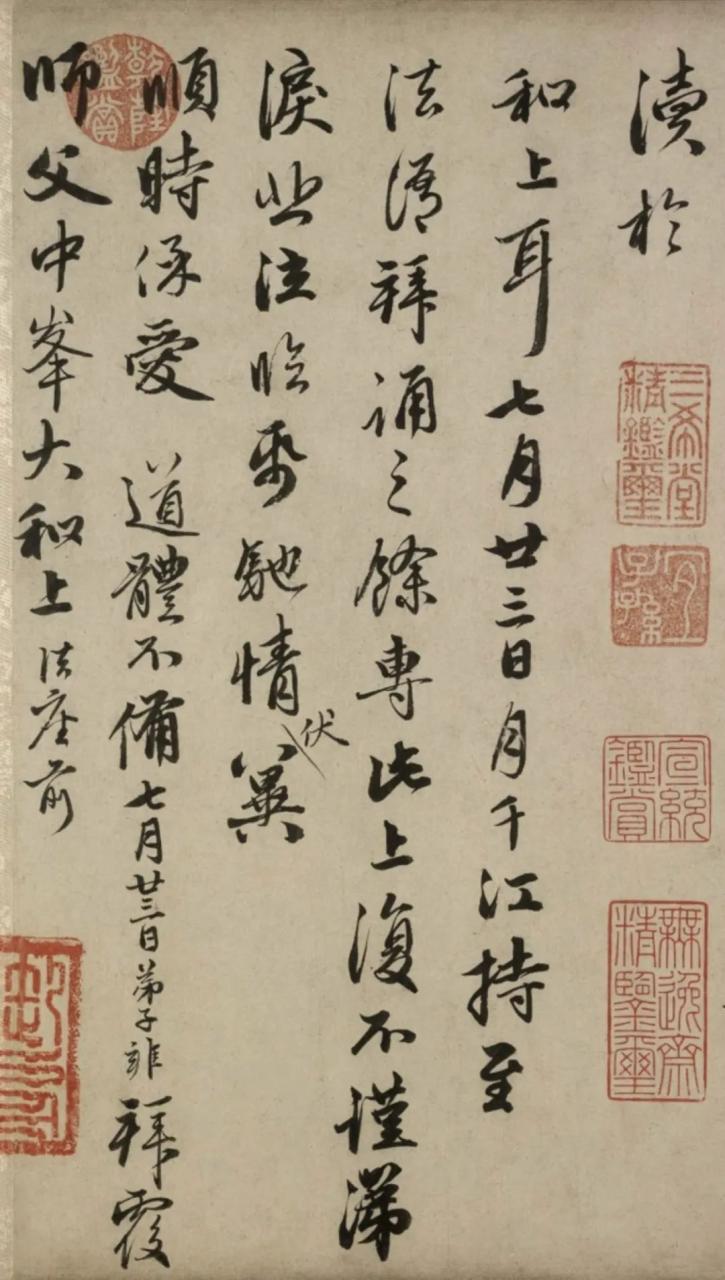 瀆於
和上耳七月廿三日月千江持至
法語拜誦之餘專此上復不謹涕
淚悲泣臨帋馳情伏冀
順時保愛 道體不備七月廿三日弟子雍拜覆
師父中峯大和上法座前
三希堂精鑑璽
宜子孫
宣統鑑賞
無逸齋精鑒璽
乾隆鑑賞